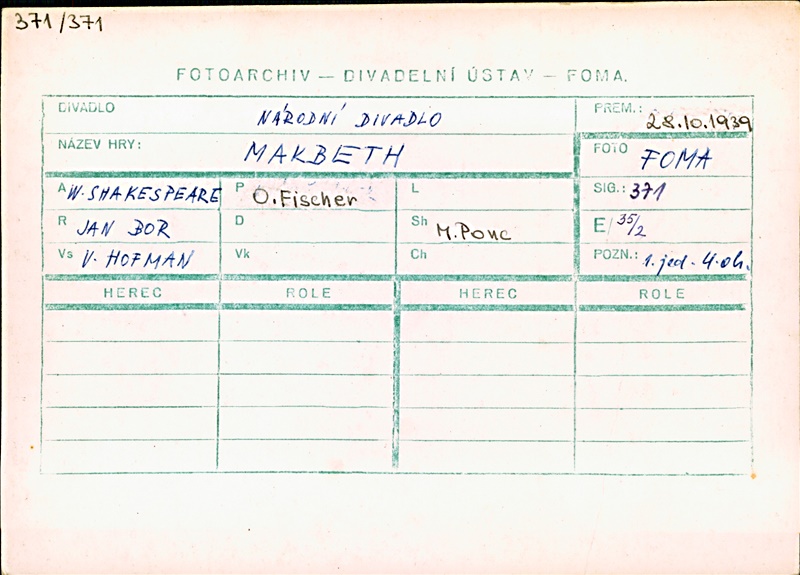 371/371
FOTOARCHIV — DIVADELNÍ ÚSTAV — FOMA.
DIVADLO NÁRODNÍ DIVADLO PREM.: 28.10.1939
NÁZEV HRY: MAKBETH FOTO FOMA
A W. SHAKESPEARE P O. Fischer L SIG.: 371
R JAN BOR D Sh M. Ponc E/ 35/2
Vs V. HOFMAN Vk Ch POZN.: 1. jed. 4. ob.
HEREC ROLE HEREC ROLE